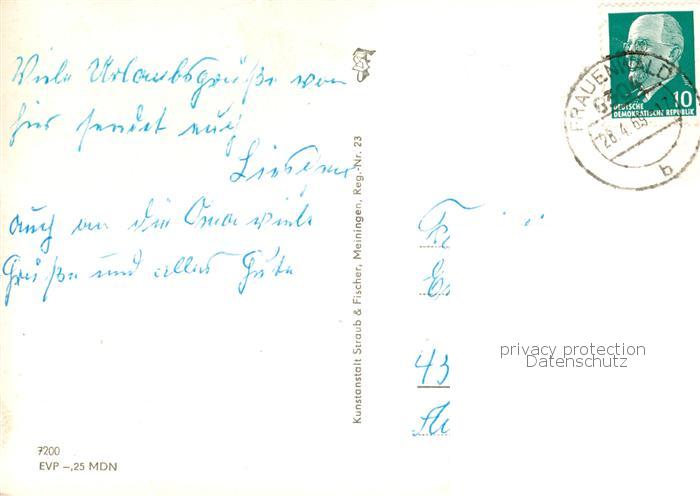 Viele Urlaubsgrüße von
hier sendet euch
auch an die Oma viele
Grüße und alles Gute
7200
EVP –,25 MDN
Kunstanstalt Straub & Fischer, Meiningen, Reg.-Nr. 23
FRAUENWALD
26.4.69
b
10
DEUTSCHE
DEMOKRATISCHE REPUBLIK
43
privacy protection
Datenschutz